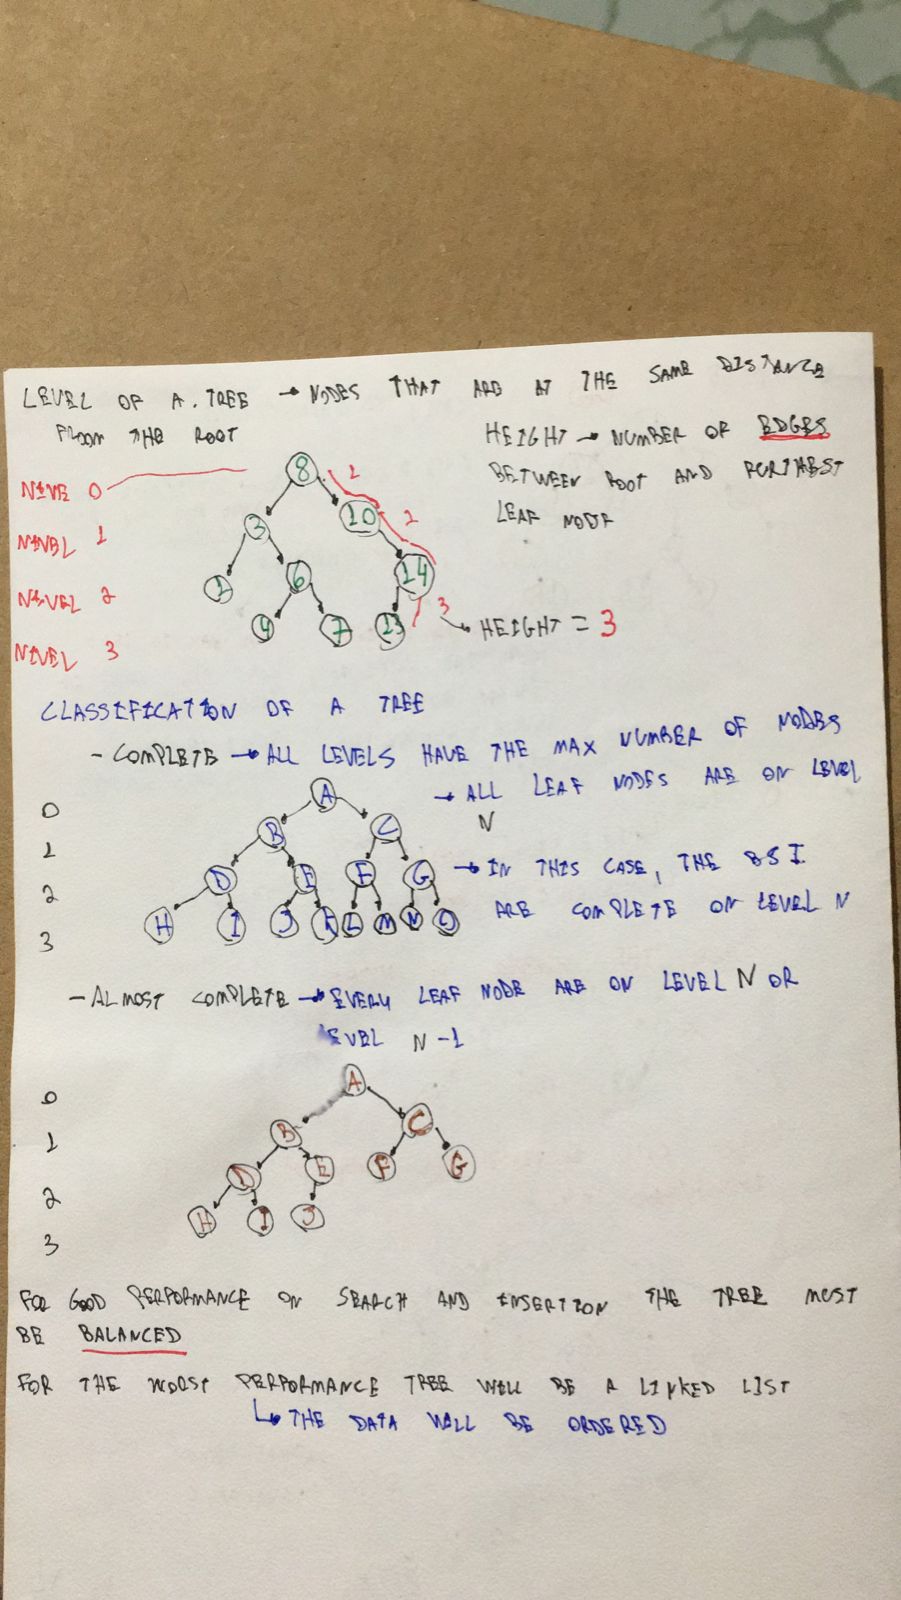 LEVEL OF A. TREE → NODES THAT ARE AT THE SAME DISTANCE
FROM THE ROOT
HEIGHT → NUMBER OF EDGES
BETWEEN ROOT AND FURTHEST
LEAF NODE
NIVE 0
8
1
NIVEL 1
3
10
2
NIVEL 2
1
6
14
3
NIVEL 3
4
7
13
HEIGHT = 3
CLASSIFICATION OF A TREE
- COMPLETE → ALL LEVELS HAVE THE MAX NUMBER OF NODES
→ ALL LEAF NODES ARE ON LEVEL
N
0
A
1
B C
2
D E F G
3
H I J K L M N O
→ IN THIS CASE, THE
ARE COMPLETE ON LEVEL N
- ALMOST COMPLETE → EVERY LEAF NODE ARE ON LEVEL N OR
LEVEL N -1
0
A
1
B C
2
D E F G
3
H I J
FOR GOOD PERFORMANCE ON SEARCH AND INSERTION THE TREE MUST
BE BALANCED
FOR THE WORST PERFORMANCE TREE WILL BE A LINKED LIST
↳ THE DATA WILL BE ORDERED